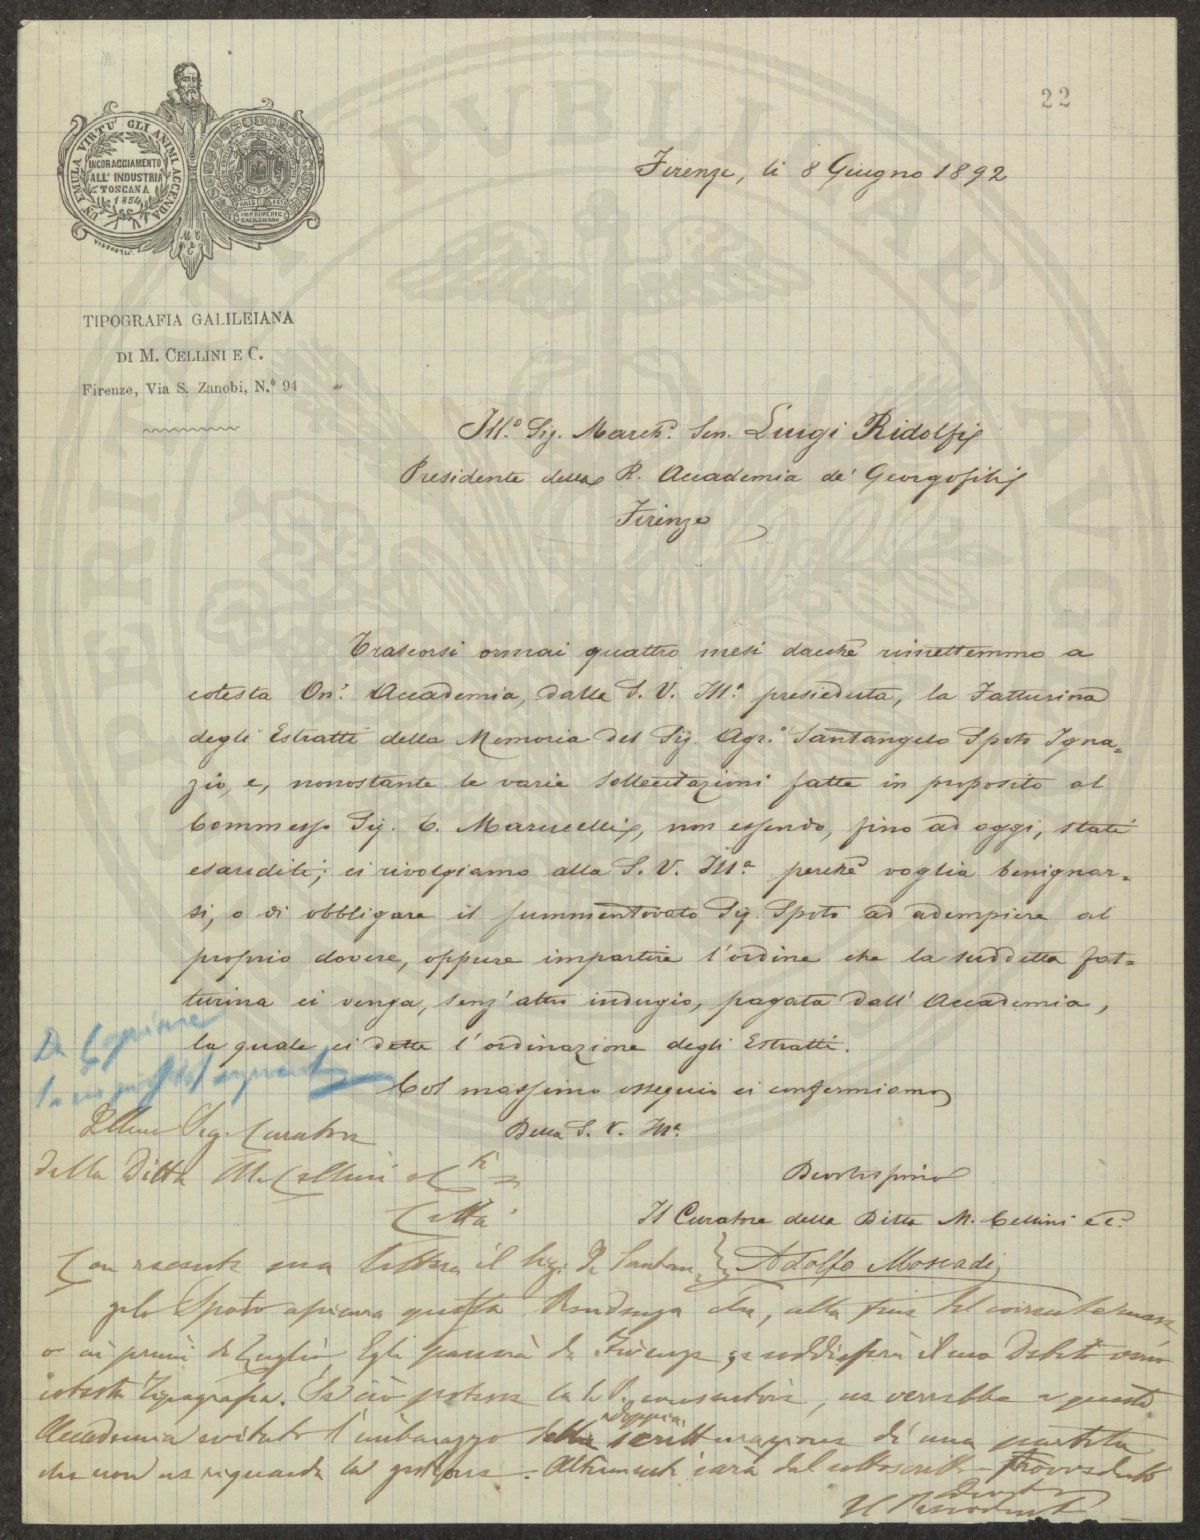 22
UN EMULA VIRTU' GLI ANIMI ACCENDA
INCORAGGIAMENTO
ALL' INDUSTRIA
TOSCANA
1854
TIPOGRAFIA GALILEIANA
DI M. CELLINI E C.
Firenze, Via S. Zanobi, N.º 94
Firenze, li 8 Giugno 1892
Ill.º Sig. March. Sen. Luigi Ridolfi
Presidente della R. Accademia de' Georgofili
Firenze
Trascorsi ormai quattro mesi dacchè rimettemmo a
cotesta On. Accademia, dalla S. V. Ill.ª presieduta, la Fatturina
degli Estratti della Memoria del Sig. Agr.º Santangelo Spoto Igna=
zio, e, nonostante le varie sollecitazioni fatte in proposito al
Commesso Sig. C. Marucelli, non essendo, fino ad oggi, stati
esauditi; ci rivolgiamo alla S. V. Ill.ª perchè voglia benignar=
si, o di obbligare il summentovato Sig. Spoto ad adempiere al
proprio dovere, oppure impartire l'ordine che la suddetta fat=
turina ci venga, senz'altro indugio, pagata dall'Accademia,
la quale ci dette l'ordinazione degli Estratti.
Da Copiare
Col massimo ossequio ci confermiamo
Della S. V. Ill.ª
Sig. Curatore
della Ditta M. Cellini e C.
Città
Il Curatore della Ditta M. Cellini e C.º
Adolfo Moscadi
Con recente sua lettera il Sig. De Santan
gelo Spoto assicura questa Presidenza che, alla fine del corrente mese
o ai primi di Luglio, Egli passerà da Firenze e soddisferà il suo debito verso
cotesta Tipografia. Se ciò potesse la S. V. consentire, ne verrebbe a questa
Accademia evitato l'imbarazzo della doppia scritturazione di una partita
che non ne riguarda la gestione. Altrimenti sarà dal sottoscritto provveduto
Il Presidente